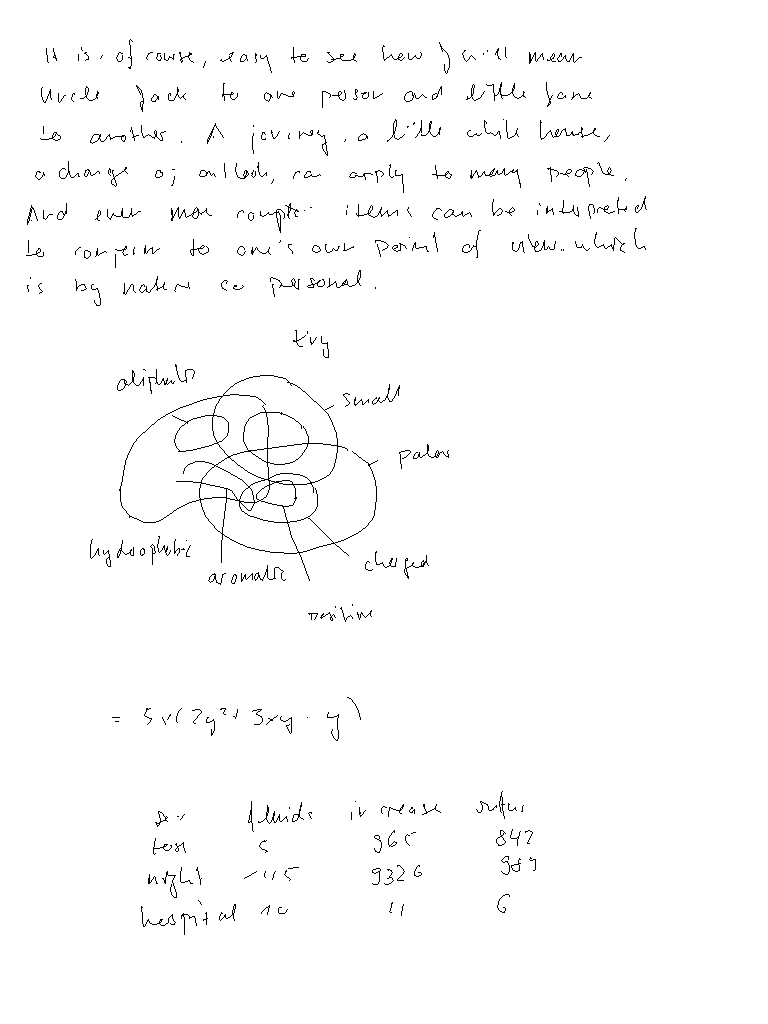 It is, of course, easy to see how J will mean
Uncle Jack to one person and little Jane
to another. A journey, a little white house,
a change of outlook, can apply to many people.
And even more items can be interpreted
to conform to one's own point of view, which
is by nature so personal.
tiny
aliphatic
small
polar
hydrophobic
aromatic
charged
positive
= 5x(2y²+3xy-y)
fluids increase
test 5 965 842
night 9326 989
hospital 10 11 6